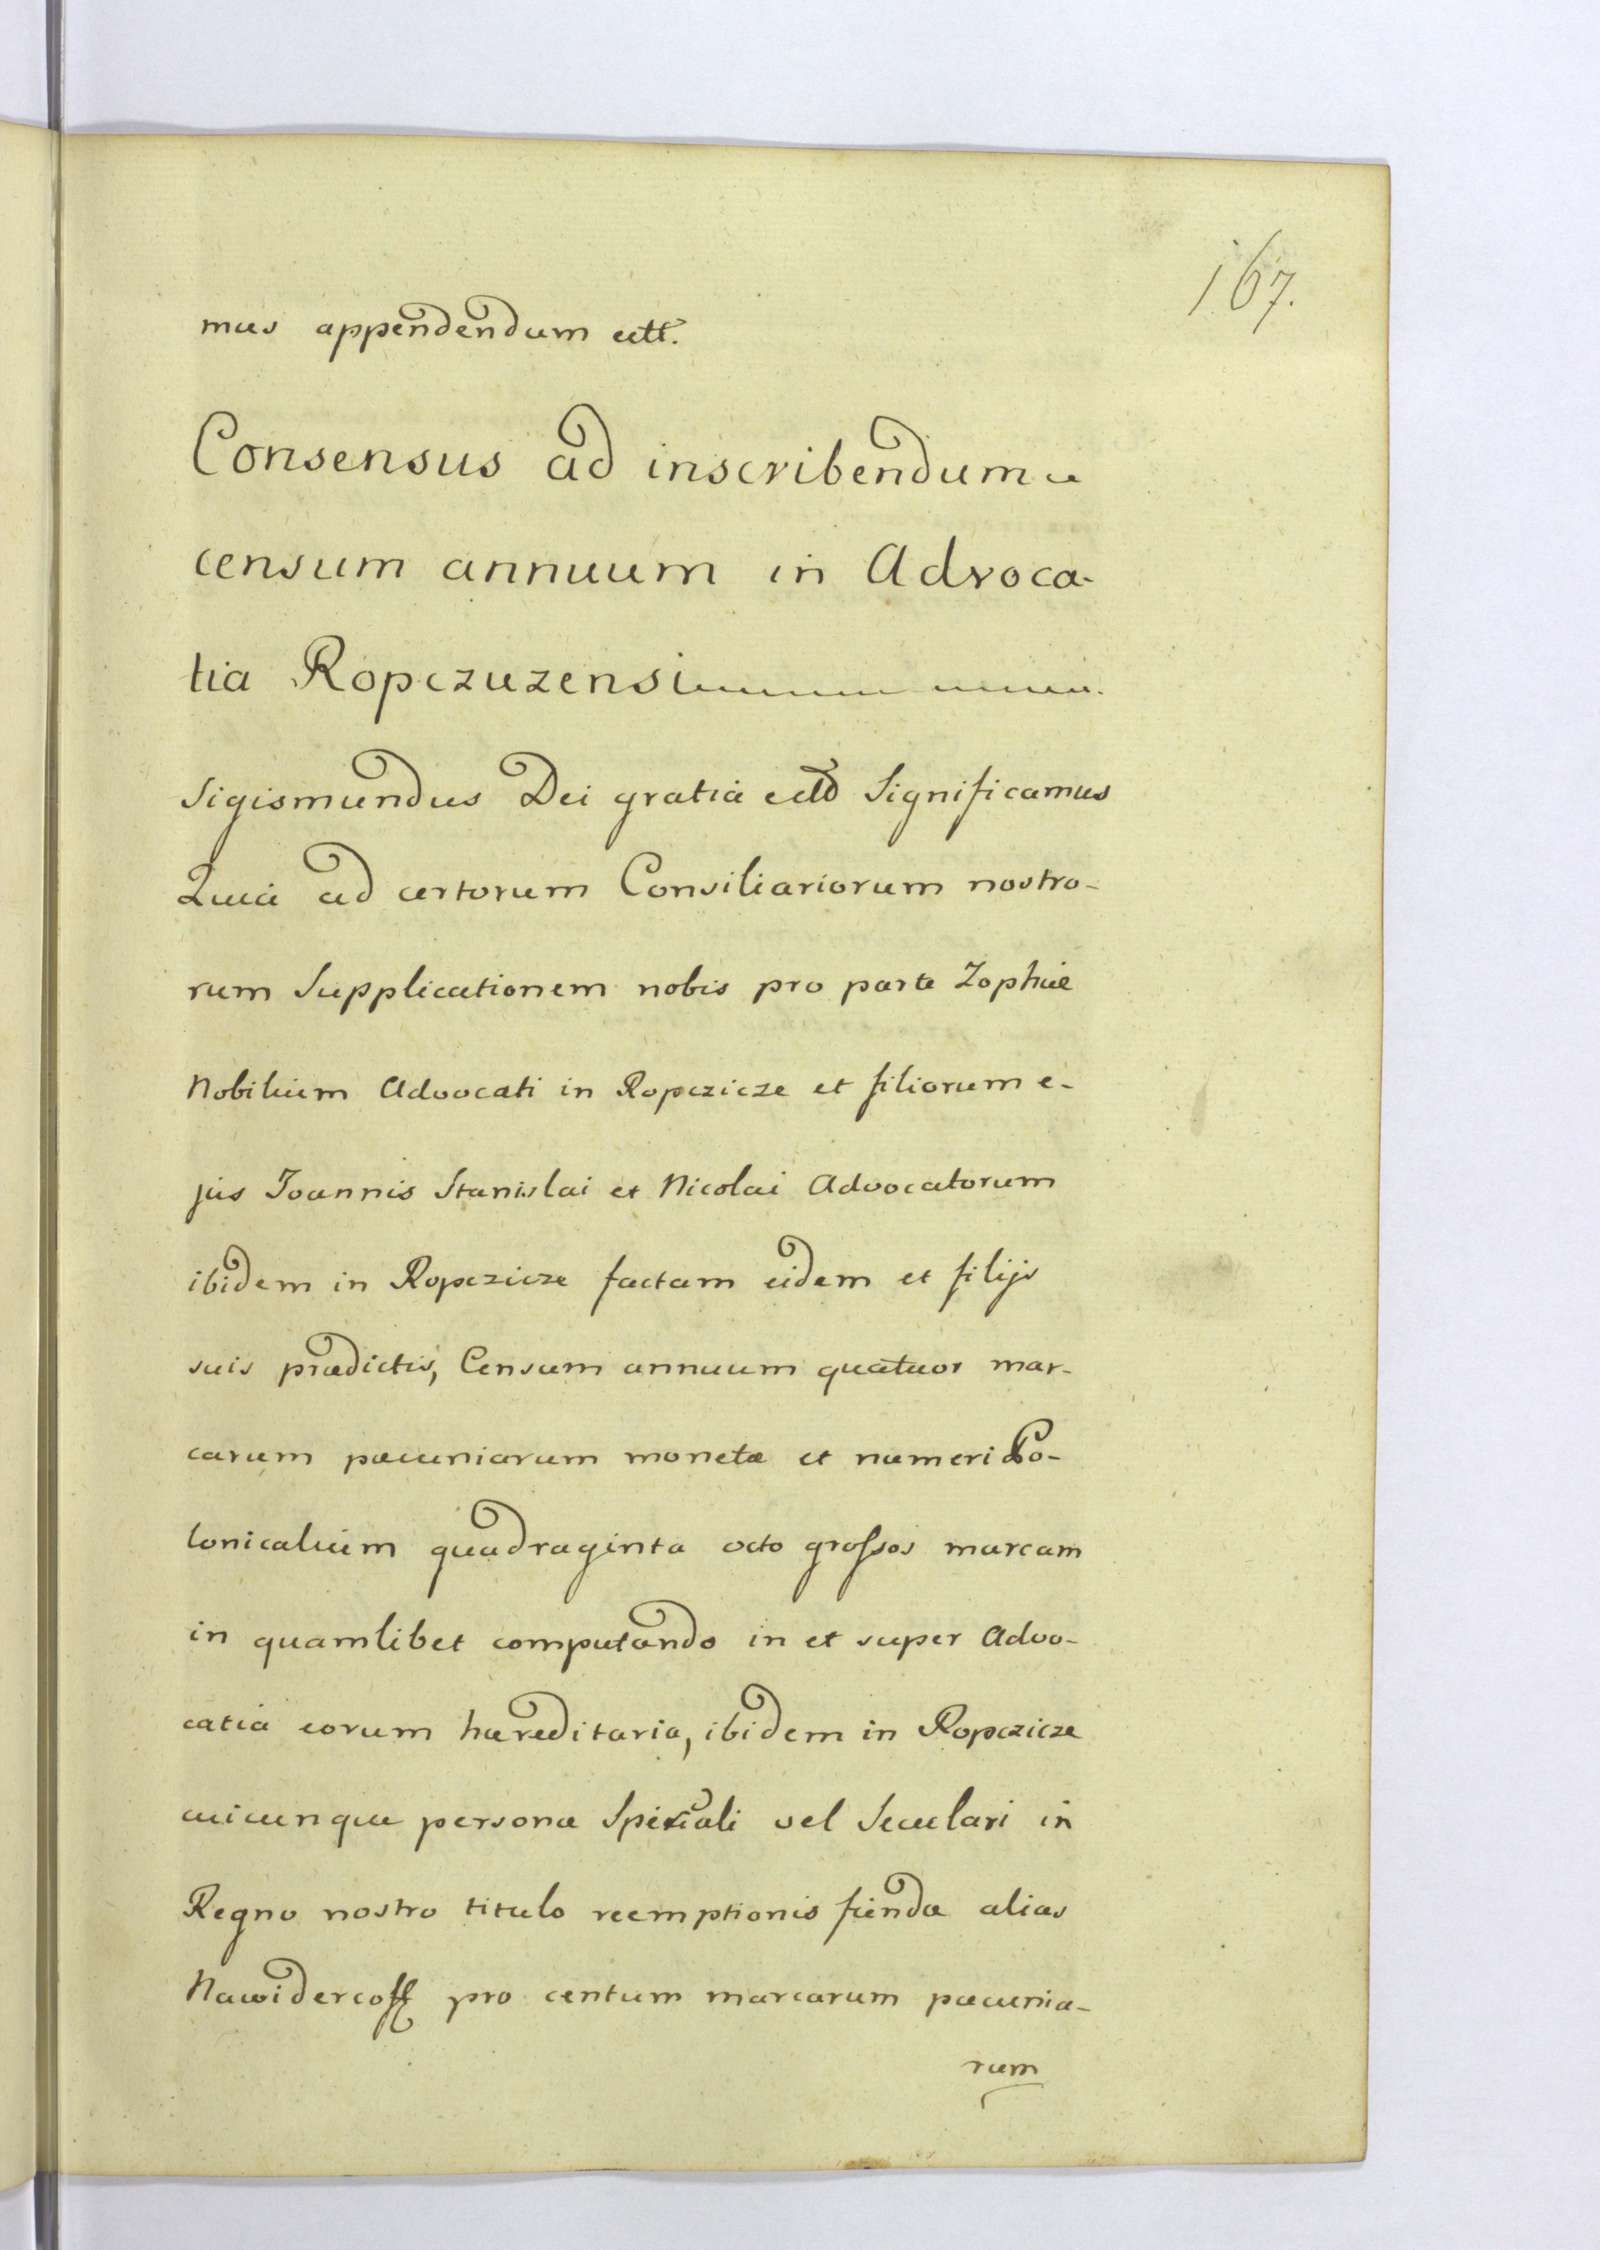 167.
mus appendendum ectt.
Consensus ad inscribendum
censum annuum in Advoca-
tia Ropczuzensi
Sigismundus Dei gratia ectt Significamus
Quia ad certorum Consiliariorum nostro-
rum Supplicationem nobis pro parte Zophiæ
Nobilium Advocati in Ropczicze et filiorum e-
jus Joannis Stanislai et Nicolai Advocatorum
ibidem in Ropczicze factam eidem et filijs
suis prædictis, Censum annuum quatuor mar-
carum pæcuniarum monetæ et numeri Po-
lonicalium quadraginta octo grossos marcam
in quamlibet computando in et super Advo-
catia eorum hæreditaria, ibidem in Ropczicze
cuicunque personæ Speciali vel Seculari in
Regno nostro titulo reemptionis fiendæ alias
Nawidercoff pro centum marcarum pæcunia-
rum